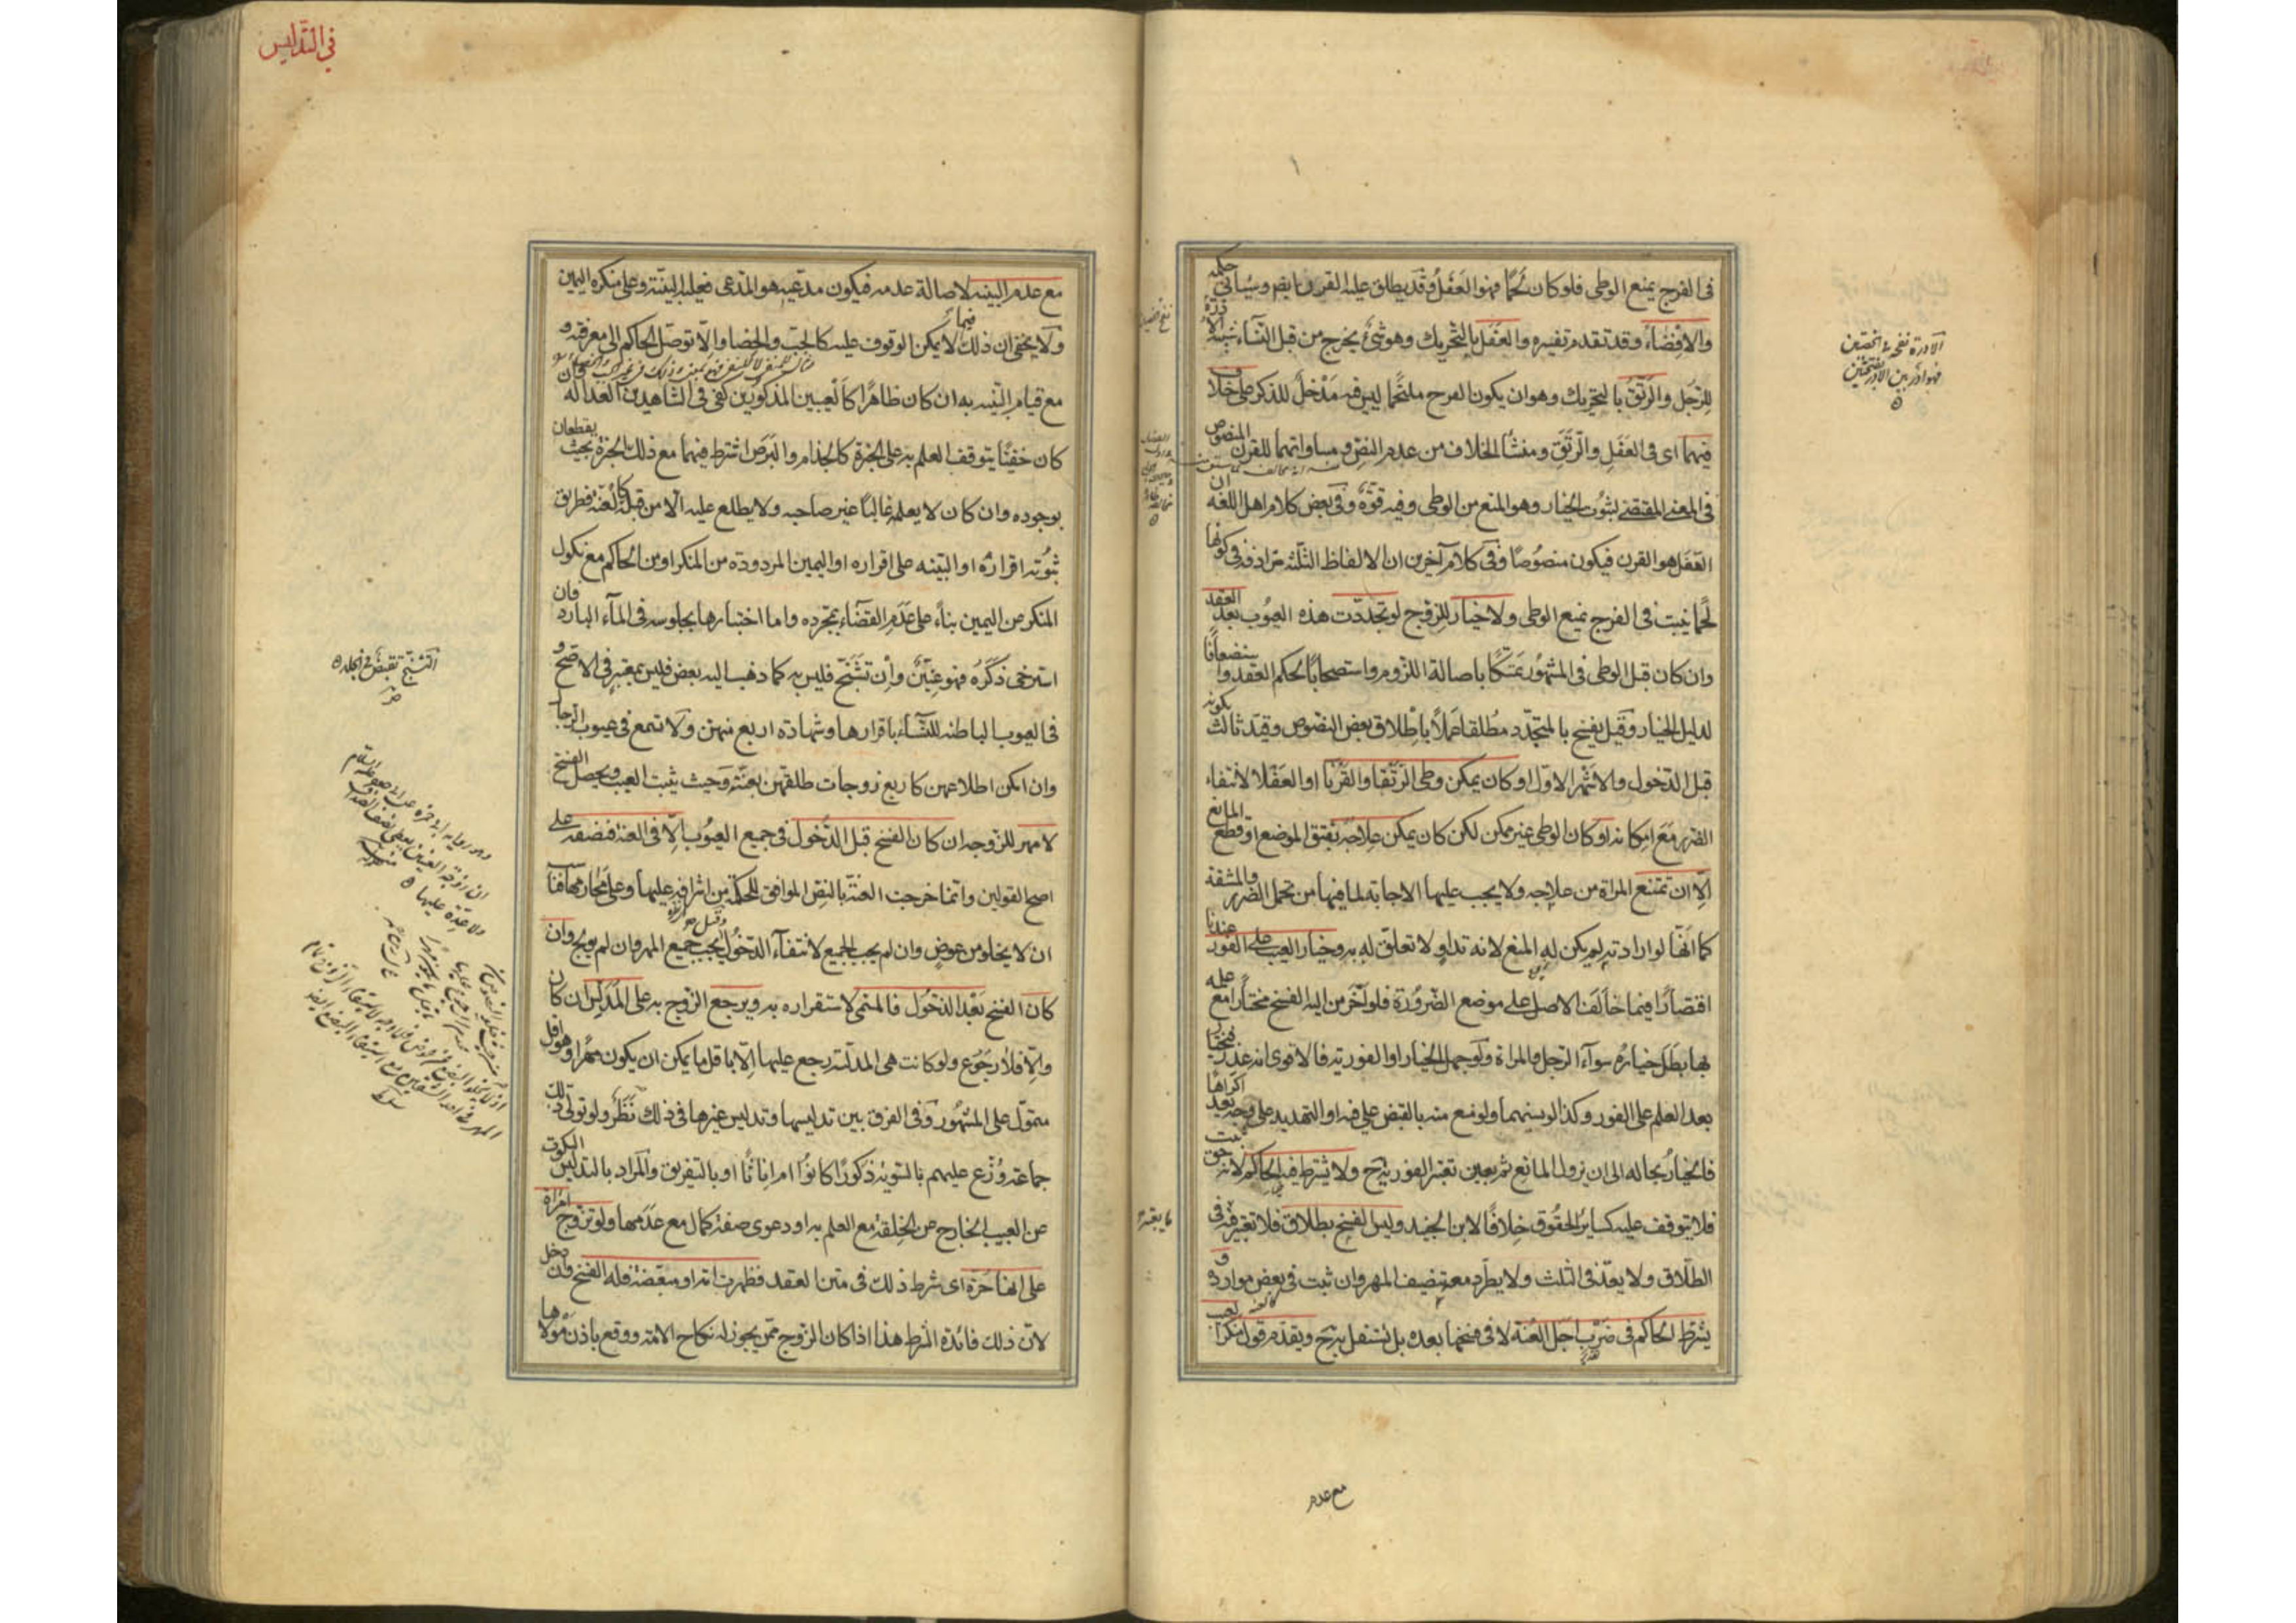 فى الفرج يمنع الوطى فلو كان لحما فهو العفل وقد يطلق عليه القرن ايضم وسيأتى حكمه
والافضاء وقد تقدم تفسيره والعفل بالتحريك وهو شئ يخرج من قبل النساء شبيه الادرة
للرجل والرتق بالتحريك وهو ان يكون الفرج ملتحما ليس فيه مدخل للذكر على خلاف
فيهما اى فى العفل والرتق ومنشأ الخلاف من عدم النص ومساواتهما للقرن المنصوص
فى المعنى المقتضى لثبوت الخيار وهو المنع من الوطى وفيه قوة وفى بعض كلام اهل اللغه ان
العفل هو القرن فيكون منصوصا وفى كلام آخرين ان الالفاظ الثلثه مترادفة فى كونها
لحما ينبت فى الفرج يمنع الوطى ولا خيار للزوج لو تجددت هذه العيوب بعد العقد
وان كان قبل الوطى فى المشهور تمسكا باصالة اللزوم واستصحابا لحكم العقد واستضعافا
لدليل الخيار وقيل يفسخ بالمتجدد مطلقا عملا باطلاق بعض النصوص وقيد ثالث بكونه
قبل الدخول والاشهر الاول او كان يمكن وطى الرتقا والقرنا او العفلا لانتفاء
الضرر مع امكانه او كان الوطى غير ممكن لكن كان يمكن علاجه بفتق الموضع او قطع المانع
الا ان تمتنع المراة من علاجه ولا يجب عليها الاجابة لما فيها من تحمل الضرر والمشقة
كما انها لو ارادته لم يكن له المنع لانه تداو لا تعلق له به وخيار العيب على الفور عندنا
اقتصارا فيما خالف الاصل على موضع الضرورة فلو اخر من اليه الفسخ مختارا مع علمه
بها بطل خياره سواء الرجل والمراة ولو جهل الخيار او الفورية فالاقوى انه عذر فيختار
بعد العلم على الفور وكذا لو نسيهما ولو منع منه بالقبض على فيه او التهديد على وجه يعد اكراها
فالخيار بحاله الى ان يزول المانع ثم يعين تعتبر الفورية ح ولا يشترط فيه الحاكم لانه حق ثبت
فلا يتوقف عليه كسائر الحقوق خلافا لابن الجنيد وليس الفسخ بطلاق فلا تعتبر فيه فى
الطلاق ولا يعد فى الثلث ولا يطرد معه تنصيف المهر وان ثبت فى بعض موارده و
يشترط الحاكم فى ضرب اجل العنة لا فى فسخها بعده بل تستقل به ح ويقدم قول منكر العيب
مع عدم
الادرة نفخة فى الخصيتين
فهو ادر بين الادر بفتحتين
فى التدليس
مع عدم البينه لاصالة عدمه فيكون مدعيه هو المدعى فعليه البينة وعلى منكره اليمين
ولا يخفى ان ذلك فيما لا يمكن الوقوف عليه كالجب والخصا والا توصل الحاكم الى معرفته و
مع قيام البينه به ان كان ظاهرا كالعيبين المذكورين كفى فى الشاهدين العداله وان
كان خفيا يتوقف العلم به على الخبرة كالجذام والبرص اشترط فيهما مع ذلك الخبرة بحيث يقطعان
بوجوده وان كان لا يعلمه غالبا غير صاحبه ولا يطلع عليه الا من قبله كالعنة فطريق
ثبوته اقراره او البينه على اقراره او اليمين المردودة من المنكر او من الحاكم مع نكول
المنكر عن اليمين بناء على عدم القضاء بمجرده واما اختبارها بجلوسه فى الماء البارد فان
استرخى ذكره فهو عنين وان تشنج فليس به كما ذهب اليه بعض فليس بمعتبر فى الاصح و
فى العيوب الباطنه للنساء باقرارها وشهادة اربع منهن ولا تسمع فى عيوب الرجال
وان امكن اطلاعهن كاربع زوجات طلقهن بعنة وحيث يثبت العيب ويحصل الفسخ
لا مهر للزوجه ان كان الفسخ قبل الدخول فى جميع العيوب الا فى العنة فنصفه على
اصح القولين وانما خرجت العنة بالنص الموافق للحكمة من اشرافه عليها وعلى محارمها فناسب
ان لا يخلو من عوض وان لم يجب الجميع لانتفاء الدخول وقيل يجب جميع المهر وان لم يولج وان
كان الفسخ بعد الدخول فالمسمى لاستقراره به ويرجع الزوج به على المدلس ان كان
والا فلا رجوع ولو كانت هى المدلسة رجع عليها الا باقل ما يمكن ان يكون مهرا وهو اقل
متمول على المشهور وفى الفرق بين تدليسها وتدليس غيرها فى ذلك نظر ولو تولى ذلك
جماعة وزع عليهم بالسوية ذكورا كانوا ام اناثا او بالتفريق والمراد بالتدليس السكوت
عن العيب الخارج عن الخلقة مع العلم به او دعوى صفة كمال مع عدمها ولو تزوج امراة
على انها حرة اى شرط ذلك فى متن العقد فظهرت امة او مبعضة فله الفسخ وان دخل
لان ذلك فائدة الشرط هذا اذا كان الزوج ممن يجوز له نكاح الامة ووقع باذن مولاها
التشنج تقبض فى الجلد